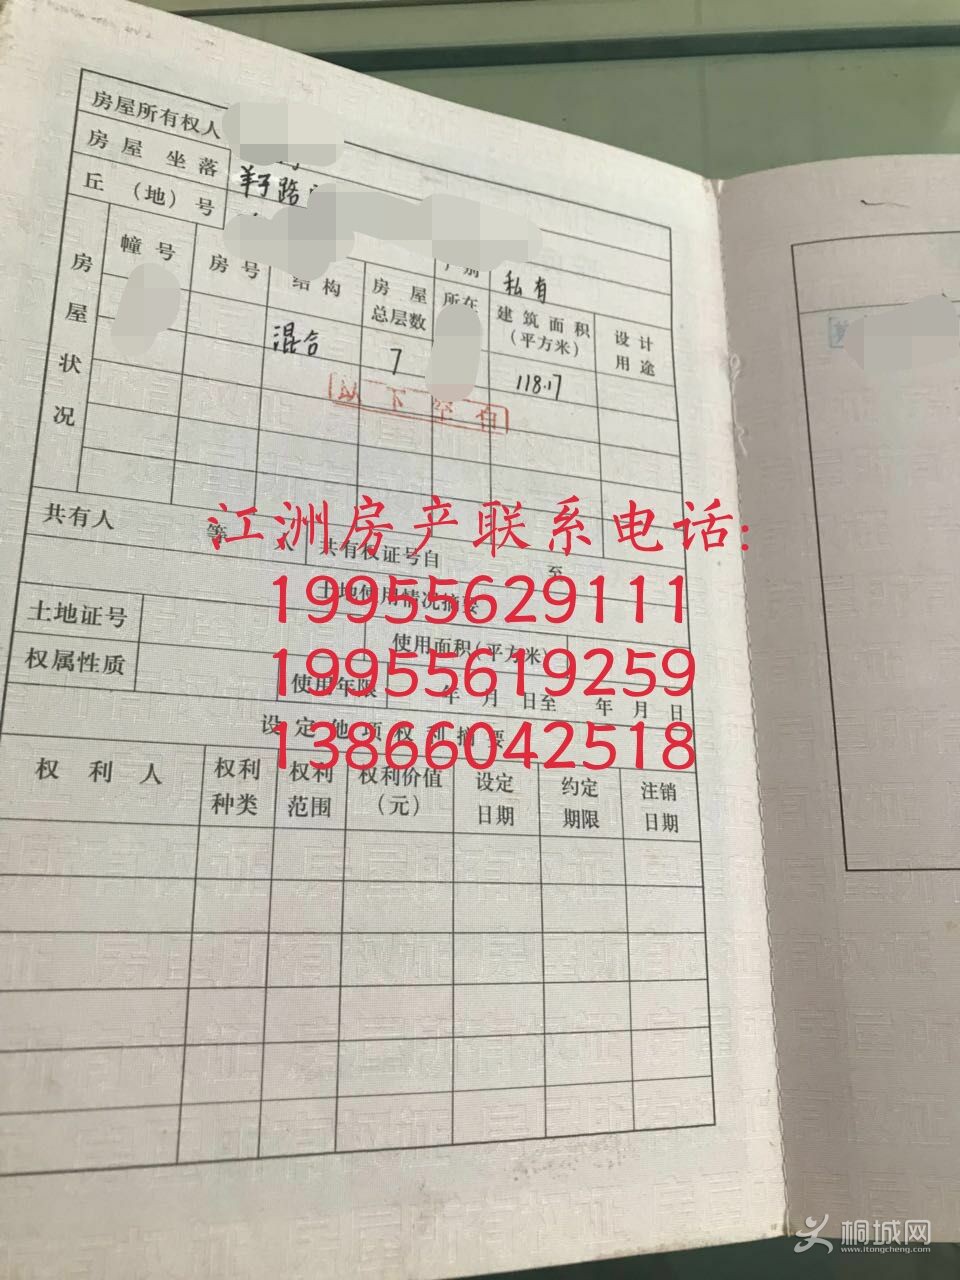 房屋所有权人
房屋坐落 羊子路
丘（地）号
产别 私有
房屋状况
幢号 房号 结构 房屋总层数 所在 建筑面积（平方米） 设计用途
混合 7 118.17
以下空白
共有人 等 人 共有权证号自 至
江洲房产联系电话:
土地使用情况摘要
19955629111
土地证号 使用面积（平方米）
19955619259
权属性质 使用年限 年 月 日至 年 月 日
设定他项权利摘要
13866042518
权利人 权利种类 权利范围 权利价值（元） 设定日期 约定期限 注销日期
桐城网
www.itongcheng.com